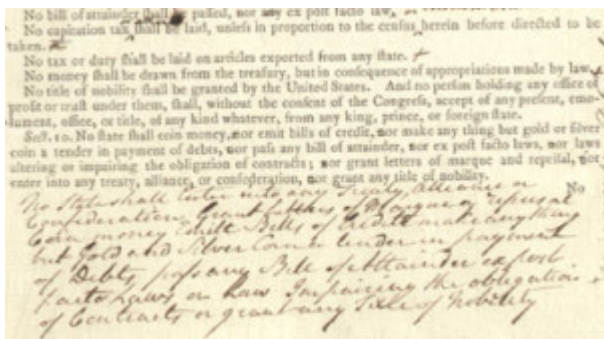 No bill of attainder shall be passed, nor any ex post facto law.
No capitation tax shall be laid, unless in proportion to the census herein before directed to be
taken.
No tax or duty shall be laid on articles exported from any state.
No money shall be drawn from the treasury, but in consequence of appropriations made by law.
No title of nobility shall be granted by the United States. And no person holding any office of
profit or trust under them, shall, without the consent of the Congress, accept of any present, emo-
lument, office, or title, of any kind whatever, from any king, prince, or foreign state.
Sect. 10. No state shall coin money, nor emit bills of credit, nor make any thing but gold or silver
coin a tender in payment of debts, nor pass any bill of attainder, nor ex post facto laws, nor laws
altering or impairing the obligation of contracts; nor grant letters of marque and reprisal, nor
enter into any treaty, alliance, or confederation, nor grant any title of nobility.
No
No State shall Enter into any Treaty Alliance or
Confederation Grant Letters of Marque or reprisal
Coin money Emit Bills of Credit make anything
but Gold and Silver Coin a tender in payment
of Debts pass any Bill of Attainder ex post
facto Laws or Law Impairing the obligation
of Contracts or grant any Title of Nobility